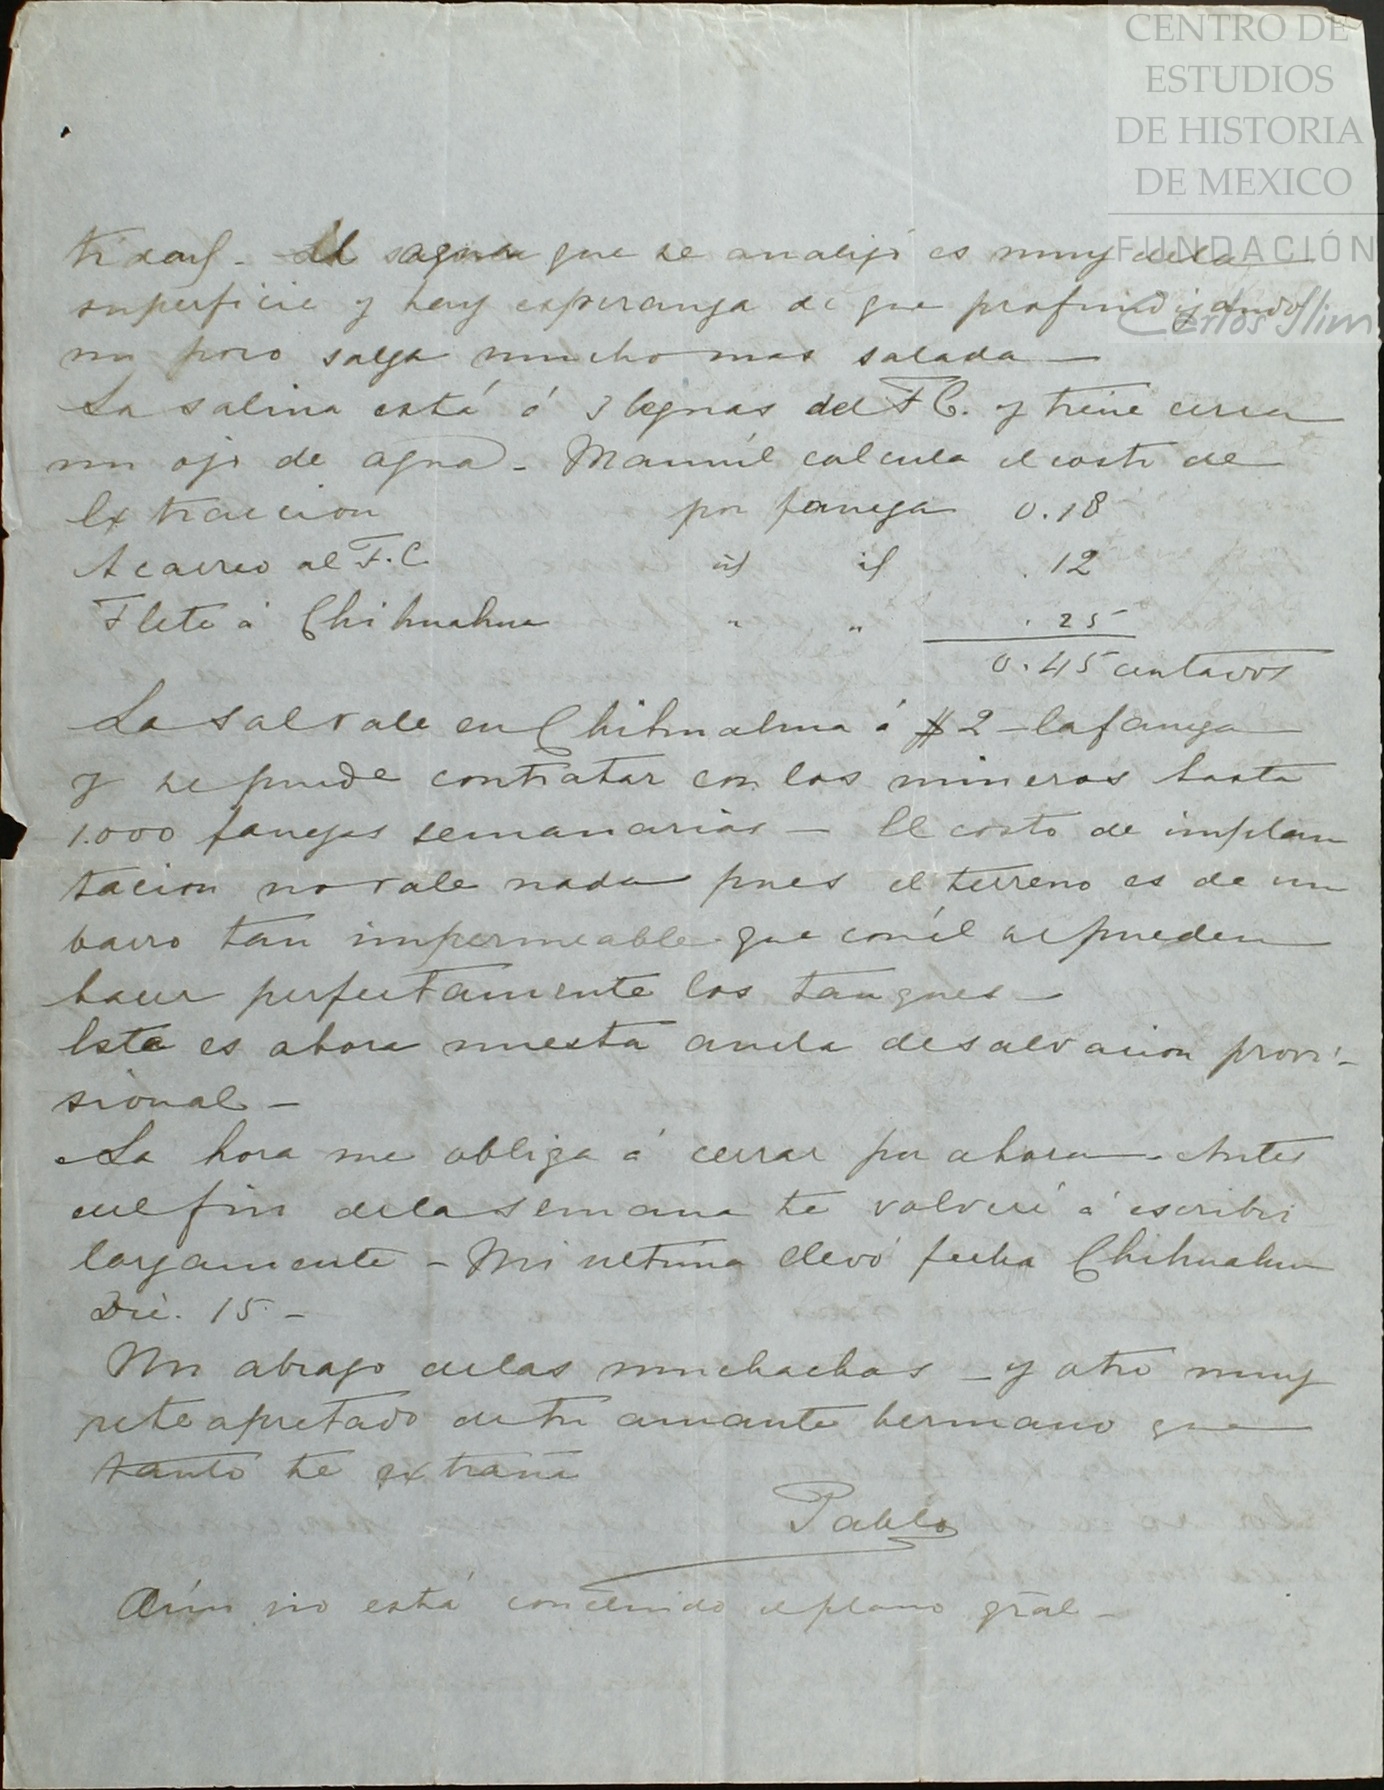 CENTRO DE
ESTUDIOS
DE HISTORIA
DE MEXICO
FUNDACIÓN
Carlos Slim
agua que se analizó es muy de la
superficie y hay esperanza de que profundizando
un poco salga mucho mas salada —
La salina está á 3 leguas del F.C. y tiene cerca
un ojo de agua — Manuel calcula el costo de
Extraccion por fanega 0.18
Acarreo al F.C. id id .12
Flete á Chihuahua " " .25
0.45 centavos
La sal vale en Chihuahua á $2 — la fanega —
y se puede contratar con los mineros hasta
1.000 fanegas semanarias — El costo de implan
tacion no vale nada pues el terreno es de un
barro tan impermeable que con él se pueden
hacer perfectamente los tanques —
Esta es ahora nuesta ancla de salvacion provi-
sional —
La hora me obliga á cerrar por ahora — Antes
del fin de la semana te volveré á escribir
largamente — Mi ultima llevó fecha Chihuahua
Dic. 15 —
Un abrazo de las muchachas — y otro muy
rete apretado de tu amante hermano que
tanto te extraña
Pablo
Aún no está concluido el plano gral —